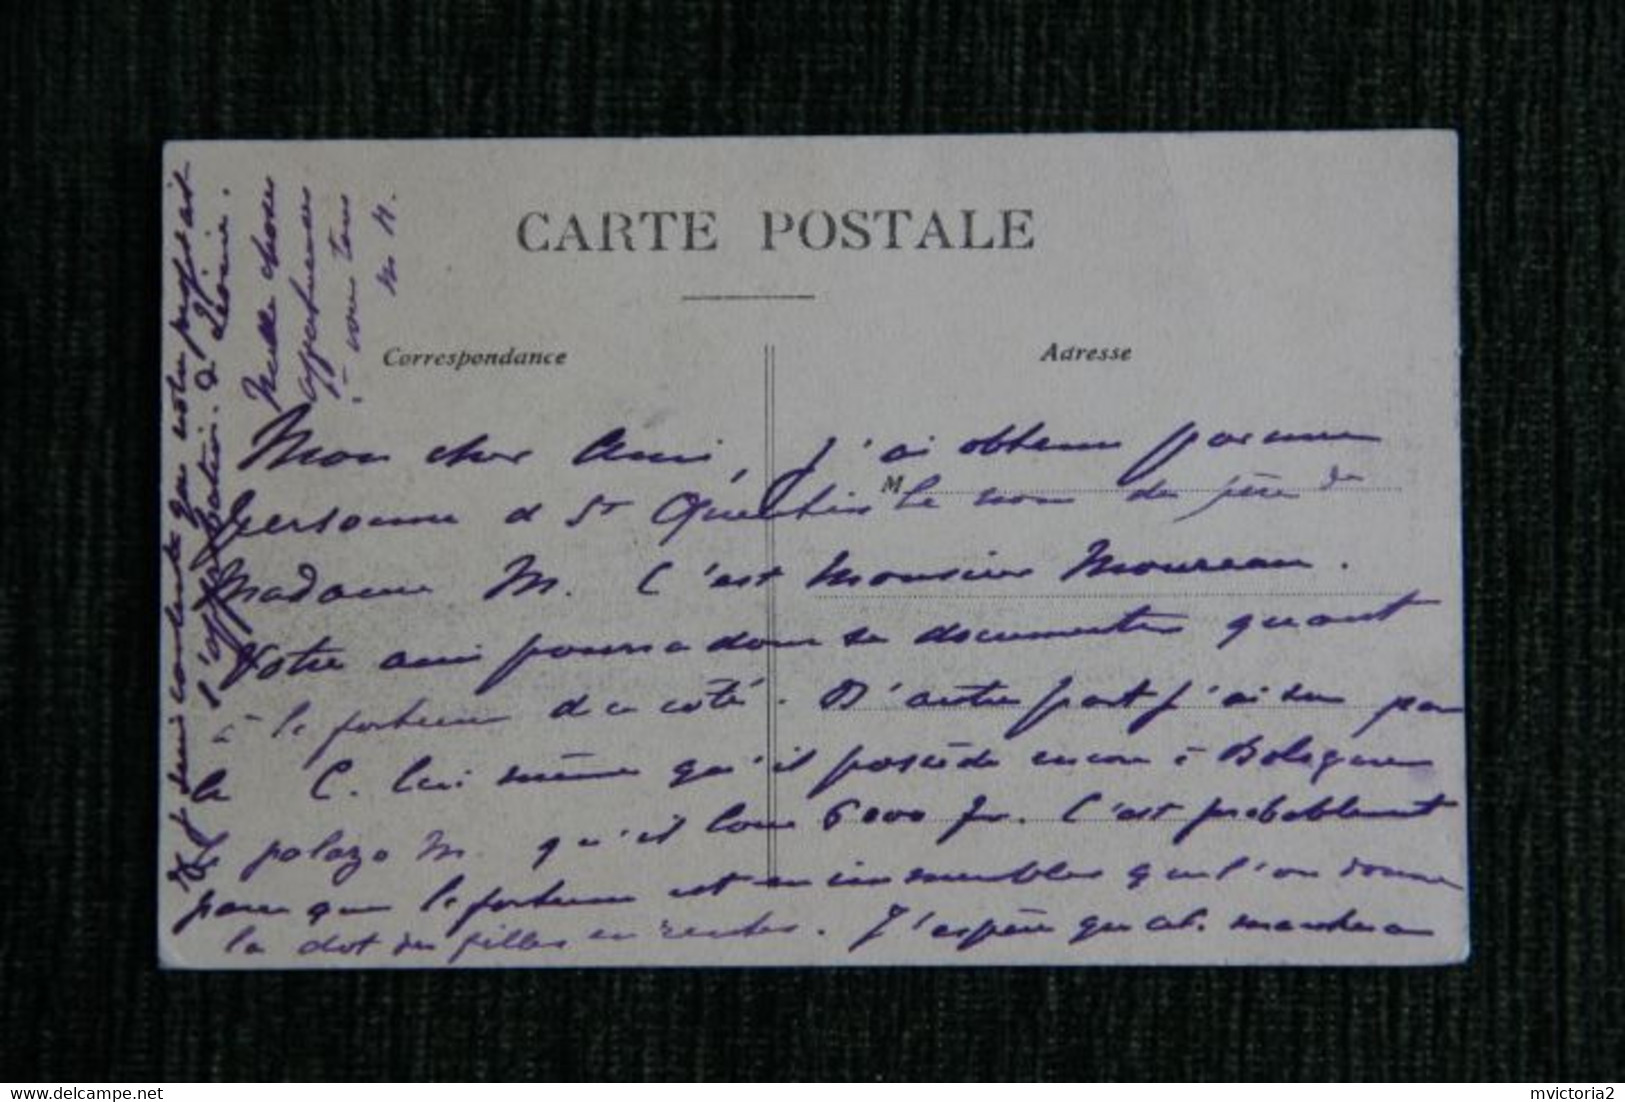 CARTE POSTALE
Correspondance
Adresse
M
Mon cher Ami, J'ai obtenu par une
personne de St Quentin le nom du père de
Madame M. C'est Monsieur Moureau.
Votre ami pourra donc se documenter quant
à la fortune de ce côté. D'autre part j'ai su par
le C. lui même qu'il possède encore à Bologne
le palazo M. qu'il loue 6000 fr. C'est probablement
parce que la fortune est en immeubles que l'on donne
la dot des filles en rentes. J'espère que cela marchera
et suis contente que votre
Mille choses
affectueuses
à vous tous
mvictoria2
delcampe.net